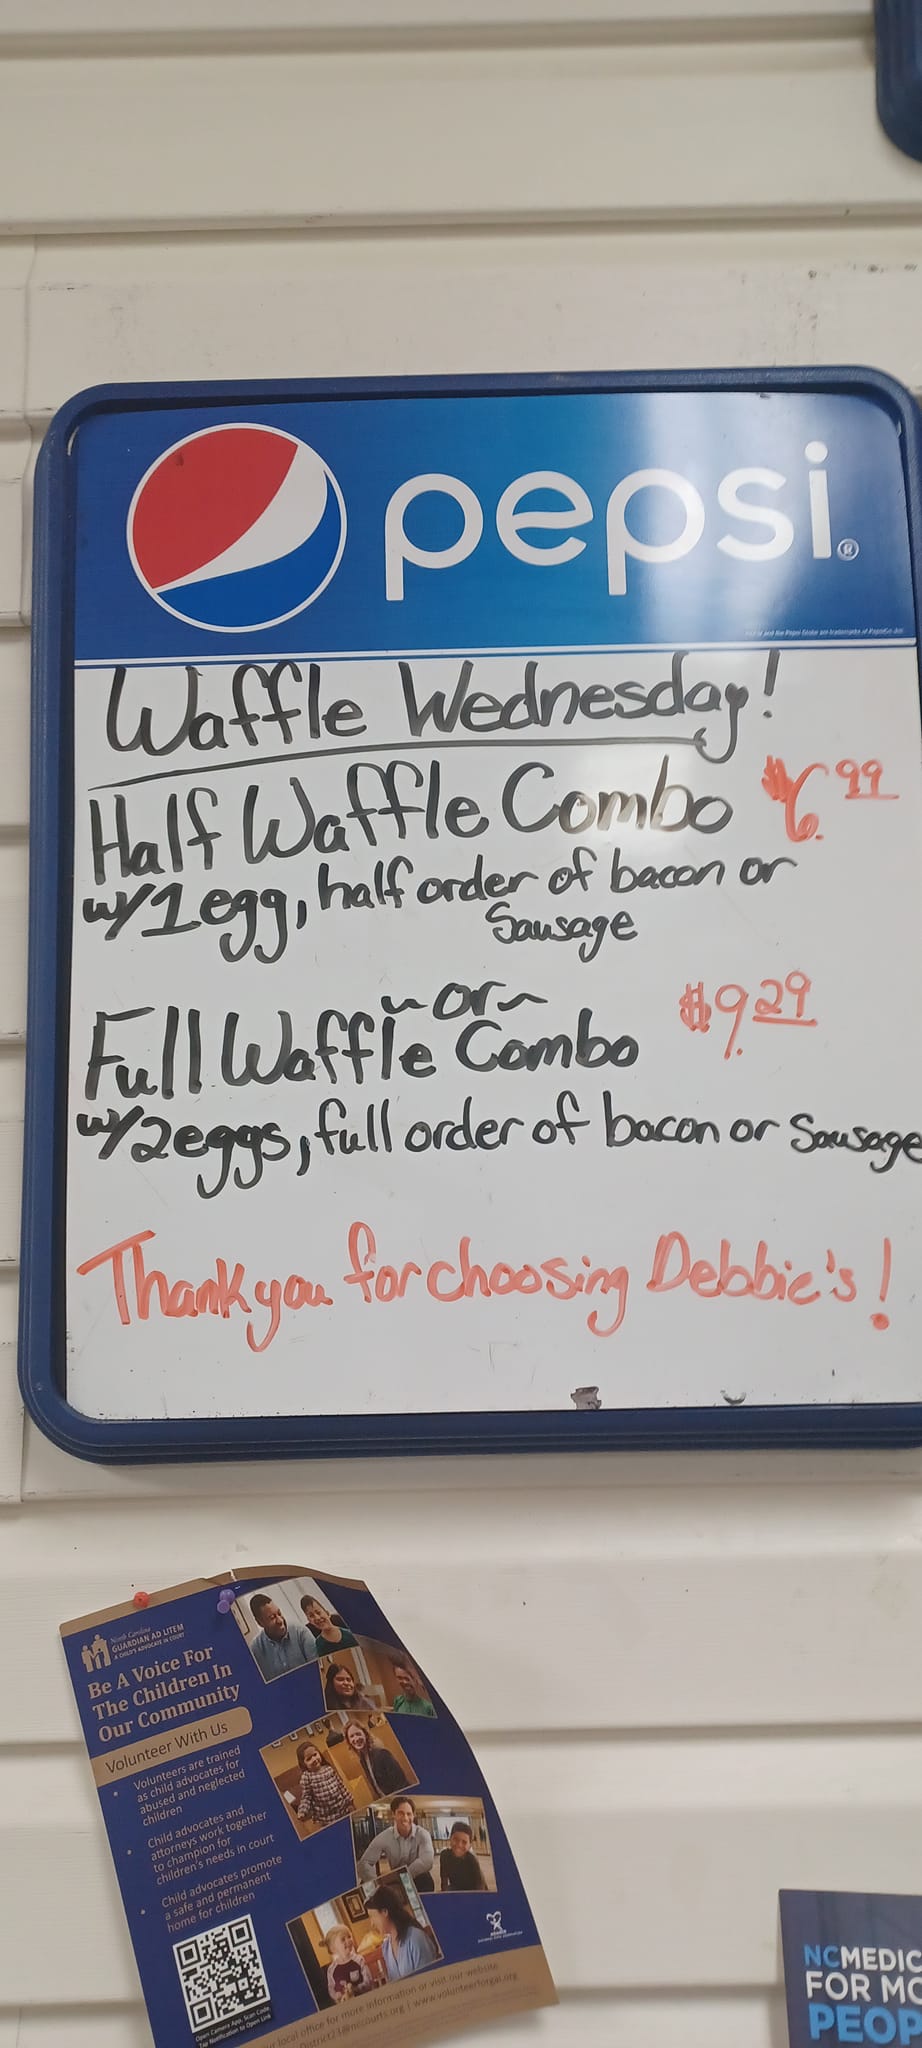 pepsi®
Waffle Wednesday!
Half Waffle Combo $6.99
w/1egg, half order of bacon or
Sausage
~or~
Full Waffle Combo $9.29
w/2eggs, full order of bacon or Sausage
Thank you for choosing Debbie's!
North Carolina
GUARDIAN AD LITEM
A CHILD'S ADVOCATE IN COURT
Be A Voice For
The Children In
Our Community
Volunteer With Us
• Volunteers are trained
as child advocates for
abused and neglected
children
• Child advocates and
attorneys work together
to champion for
children's needs in court
• Child advocates promote
a safe and permanent
home for children
Open Camera App, Scan Code,
Tap Notification to Open Link
local office for more information or visit our website
District23@nccourts.org | www.volunteerforgal.org
NCMEDIC
FOR MO
PEOP